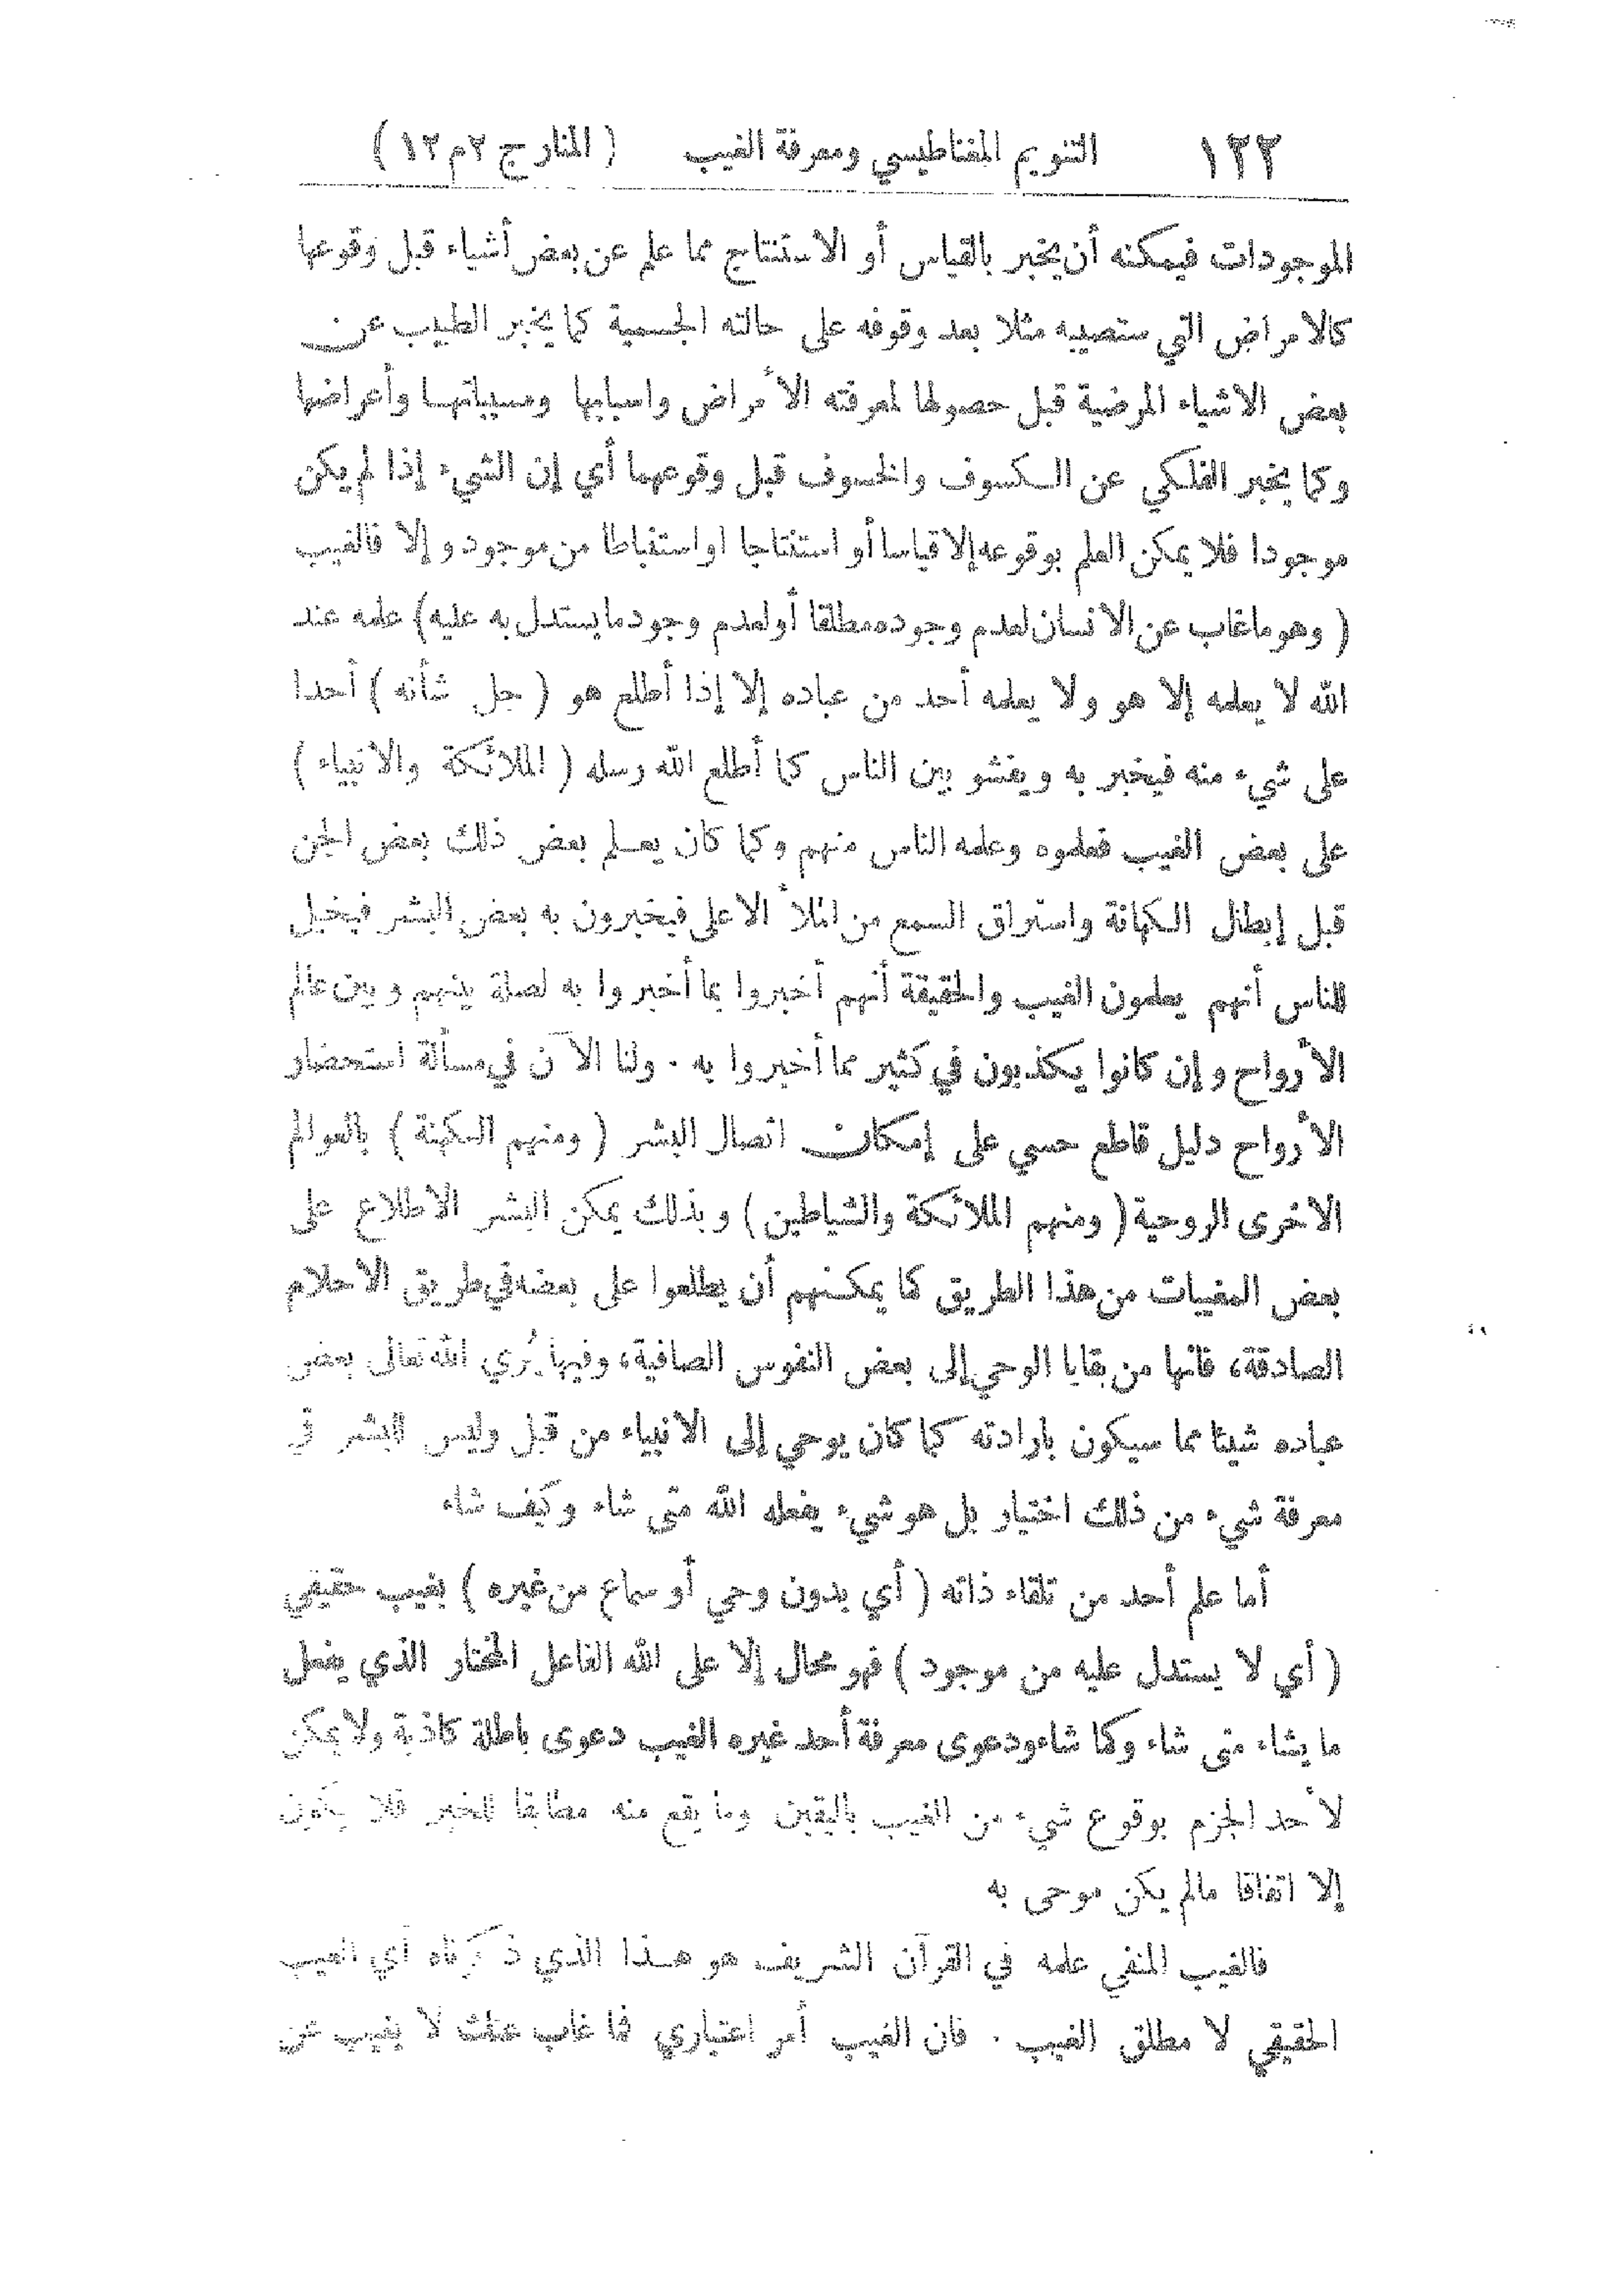 ١٢٢ التنويم المغناطيسي ومعرفة الغيب ( المنارج ٢ م ١٢ )
الموجودات فيمكنه أن يخبر بالقياس أو الاستنتاج مما علم عن بعض أشياء قبل وقوعها
كالامراض التي ستصيبه مثلا بعد وقوفه على حالته الجسمية كما يخبر الطبيب عن
بعض الاشياء المرضية قبل حصولها لمعرفته الأمراض واسبابها ومسبباتهـا وأعراضها
وكما يخبر الفلـكي عن الـكسوف والخسوف قبل وقوعهما أي إن الشيء إذا لم يكن
موجودا فلا يمكن العلم بوقوعه إلا قياسا أو استنتاجا او استنباطا من موجود و إلا فالغيب
( وهو ما غاب عن الانسان لعدم وجوده مطلقا أو لعدم وجود ما يستدل به عليه) علمه عند
الله لا يعلمه إلا هو ولا يعلمه أحد من عباده إلا إذا أطلع هو ( جل شأنه ) أحدا
على شيء منه فيخبر به ويفشو بين الناس كما أطلع الله رسله ( الملائكة والانبياء )
على بعض الغيب فعلموه وعلمه الناس منهم وكما كان يعـلم بعض ذلك بعض الجن
قبل إبطال الـكهانة واستراق السمع من الملأ الاعلى فيخبرون به بعض البشر فيخيل
للناس أنهم يعلمون الغيب والحقيقة أنهم أخبروا بما أخبروا به لصلة بينهم وبين عالم
الأرواح وإن كانوا يـكذبون في كثير مما أخبروا به . ولنا الآن في مسألة استحضار
الأرواح دليل قاطع حسي على إمكان اتصال البشر ( ومنهم الـكهنة ) بالعوالم
الاخرى الروحية ( ومنهم الملائكة والشياطين ) وبذلك يمكن البشر الاطلاع على
بعض المغيبات من هذا الطريق كما يمكـنهم أن يطلعوا على بعضه في طريق الاحلام
الصادقة، فانها من بقايا الوحي إلى بعض النفوس الصافية، وفيها يُري الله تعالى بعض
عباده شيئا مما سيكون بارادته كما كان يوحي إلى الانبياء من قبل وليس للبشر في
معرفة شيء من ذلك اختيار بل هو شيء يفعله الله متى شاء وكيف شاء
أما علم أحد من تلقاء ذاته ( أي بدون وحي أو سماع من غيره ) بغيب حقيقي
( أي لا يستدل عليه من موجود ) فهو محال إلا على الله الفاعل المختار الذي يفعل
ما يشاء متى شاء وكما شاء ودعوى معرفة أحد غيره الغيب دعوى باطلة كاذبة ولا يمكن
لأحد الجزم بوقوع شيء من الغيب باليقين وما يقع منه مطابقا للخبر فلا يكون
إلا اتفاقا مالم يكن موحى به
فالغيب المنفي علمه في القرآن الشريف هو هـذا الذي ذكرناه أي الغيب
الحقيقي لا مطلق الغيب . فان الغيب أمر اعتباري فما غاب عنك لا يغيب عن